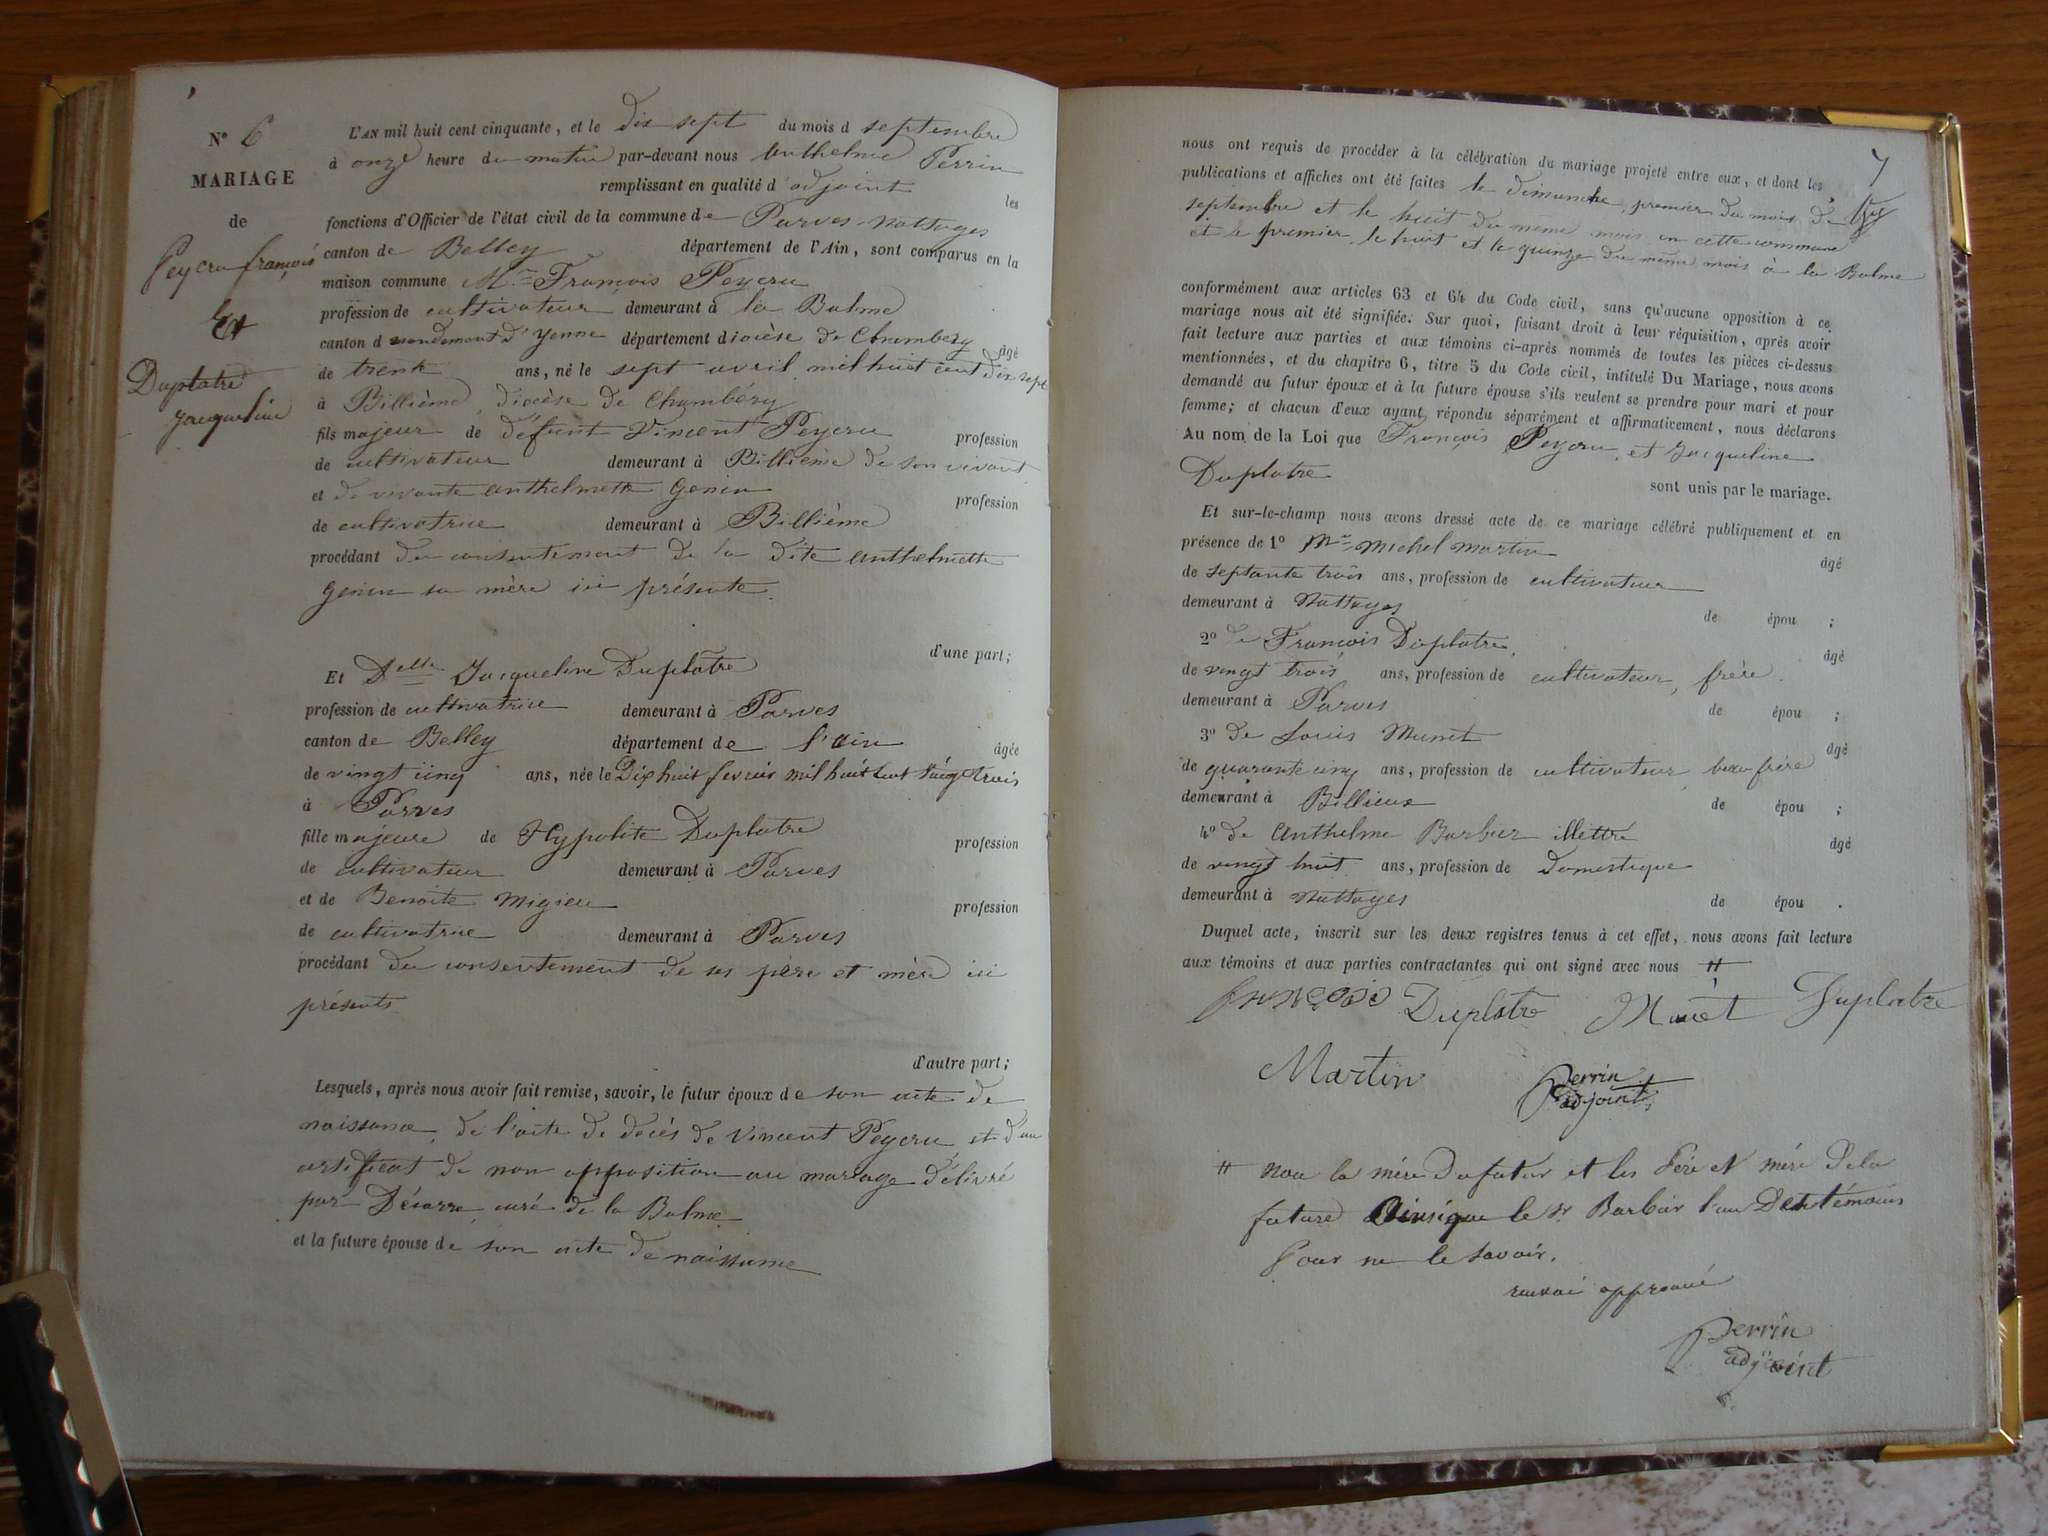 N° 6
MARIAGE
de
Peycru françois
Et
Duplatre
Jacqueline
L'AN mil huit cent cinquante, et le dix sept du mois d septembre
à onze heure du matin par-devant nous Anthelme Perrin
remplissant en qualité d'adjoint les
fonctions d'Officier de l'état civil de la commune de Parves-Nattages
canton de Belley département de l'Ain, sont comparus en la
maison commune Mr François Peycru
profession de cultivateur demeurant à la Balme
canton d mandement d'Yenne département diocèse de Chambéry âgé
de trente ans, né le sept avril mil huit cent dix sept
à Billième, diocèse de Chambéry
fils majeur de défunt Vincent Peycru profession
de cultivateur demeurant à Billième de son vivant
et de vivante Anthelmette Genin profession
de cultivatrice demeurant à Billième
procédant du consentement de la dite Anthelmette
Genin sa mère ici présente.
d'une part;
Et Delle Jacqueline Duplatre
profession de cultivatrice demeurant à Parves
canton de Belley département de l'ain âgée
de vingt cinq ans, née le Dix huit fevrier mil huit cent vingt trois
à Parves
fille majeure de Hypolite Duplatre profession
de cultivateur demeurant à Parves
et de Benoite Migieu profession
de cultivatrice demeurant à Parves
procédant du consentement de ses père et mère ici
présents
d'autre part;
Lesquels, après nous avoir fait remise, savoir, le futur époux de son acte de
naissance, de l'acte de décès de Vincent Peycru, et d'un
certificat de non opposition au mariage délivré
par curé de la Balme
et la future épouse de son acte de naissance
7
nous ont requis de procéder à la célébration du mariage projeté entre eux, et dont les
publications et affiches ont été faites le dimanche, premier du mois de
septembre et le huit du même mois en cette commune
et le premier, le huit et le quinze du même mois à la Balme
conformément aux articles 63 et 64 du Code civil, sans qu'aucune opposition à ce
mariage nous ait été signifiée. Sur quoi, faisant droit à leur réquisition, après avoir
fait lecture aux parties et aux témoins ci-après nommés de toutes les pièces ci-dessus
mentionnées, et du chapitre 6, titre 5 du Code civil, intitulé Du Mariage, nous avons
demandé au futur époux et à la future épouse s'ils veulent se prendre pour mari et pour
femme; et chacun d'eux ayant répondu séparément et affirmaticement, nous déclarons
Au nom de la Loi que François Peycru, et Jacqueline
Duplatre
sont unis par le mariage.
Et sur-le-champ nous avons dressé acte de ce mariage célébré publiquement et en
présence de 1° Mr Michel Martin âgé
de septante trois ans, profession de cultivateur
demeurant à Nattages de épou ;
2° de François Duplatre, âgé
de vingt trois ans, profession de cultivateur, frère.
demeurant à Parves de épou ;
3° de Louis Munet âgé
de quarante cinq ans, profession de cultivateur beau frère
demeurant à Billieux de épou ;
4° de Anthelme Barbier illettré âgé
de vingt huit ans, profession de domestique
demeurant à Nattages de épou .
Duquel acte, inscrit sur les deux registres tenus à cet effet, nous avons fait lecture
aux témoins et aux parties contractantes qui ont signé avec nous #
françois Duplatre Munet Duplatre
Martin Perrin
adjoint
# Non la mère Dufutur et les Père et mère Dela
future Ainsique le Sr Barbier l'un Des témoins
Pour ne le Savoir.
renvoi approuvé
Perrin
adjoint